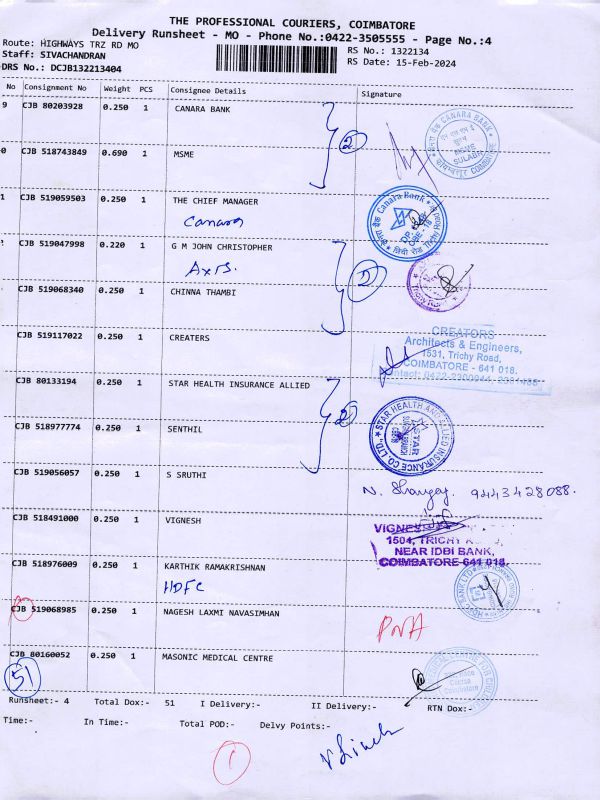 THE PROFESSIONAL COURIERS, COIMBATORE
Delivery Runsheet - MO - Phone No.:0422-3505555 - Page No.:4
Route: HIGHWAYS TRZ RD MO
RS No.: 1322134
Staff: SIVACHANDRAN
RS Date: 15-Feb-2024
DRS No.: DCJB132213404
No Consignment No Weight PCS Consignee Details Signature
9 CJB 80203928 0.250 1 CANARA BANK
CANARA BANK
MSME
SULABH
COIMBATORE
2
0 CJB 518743849 0.690 1 MSME
1 CJB 519059503 0.250 1 THE CHIEF MANAGER
Canara
Canara Bank
Trichy Road
2 CJB 519047998 0.220 1 G M JOHN CHRISTOPHER
Axis.
2
CJB 519068340 0.250 1 CHINNA THAMBI
CJB 519117022 0.250 1 CREATERS
CREATORS
Architects & Engineers,
1531, Trichy Road,
COIMBATORE - 641 018.
CJB 80133194 0.250 1 STAR HEALTH INSURANCE ALLIED
2
STAR HEALTH AND ALLIED INSURANCE CO.LTD.
STAR
CJB 518977774 0.250 1 SENTHIL
CJB 519056057 0.250 1 S SRUTHI
9443428088.
CJB 518491000 0.250 1 VIGNESH
1504, TRICHY
NEAR IDBI BANK,
COIMBATORE 641 018.
CJB 518976009 0.250 1 KARTHIK RAMAKRISHNAN
HDFC
CJB 519068985 0.250 1 NAGESH LAXMI NAVASIMHAN
CJB 80160052 0.250 1 MASONIC MEDICAL CENTRE
51
Runsheet:- 4 Total Dox:- 51 I Delivery:- II Delivery:- RTN Dox:-
Time:- In Time:- Total POD:- Delvy Points:-
1